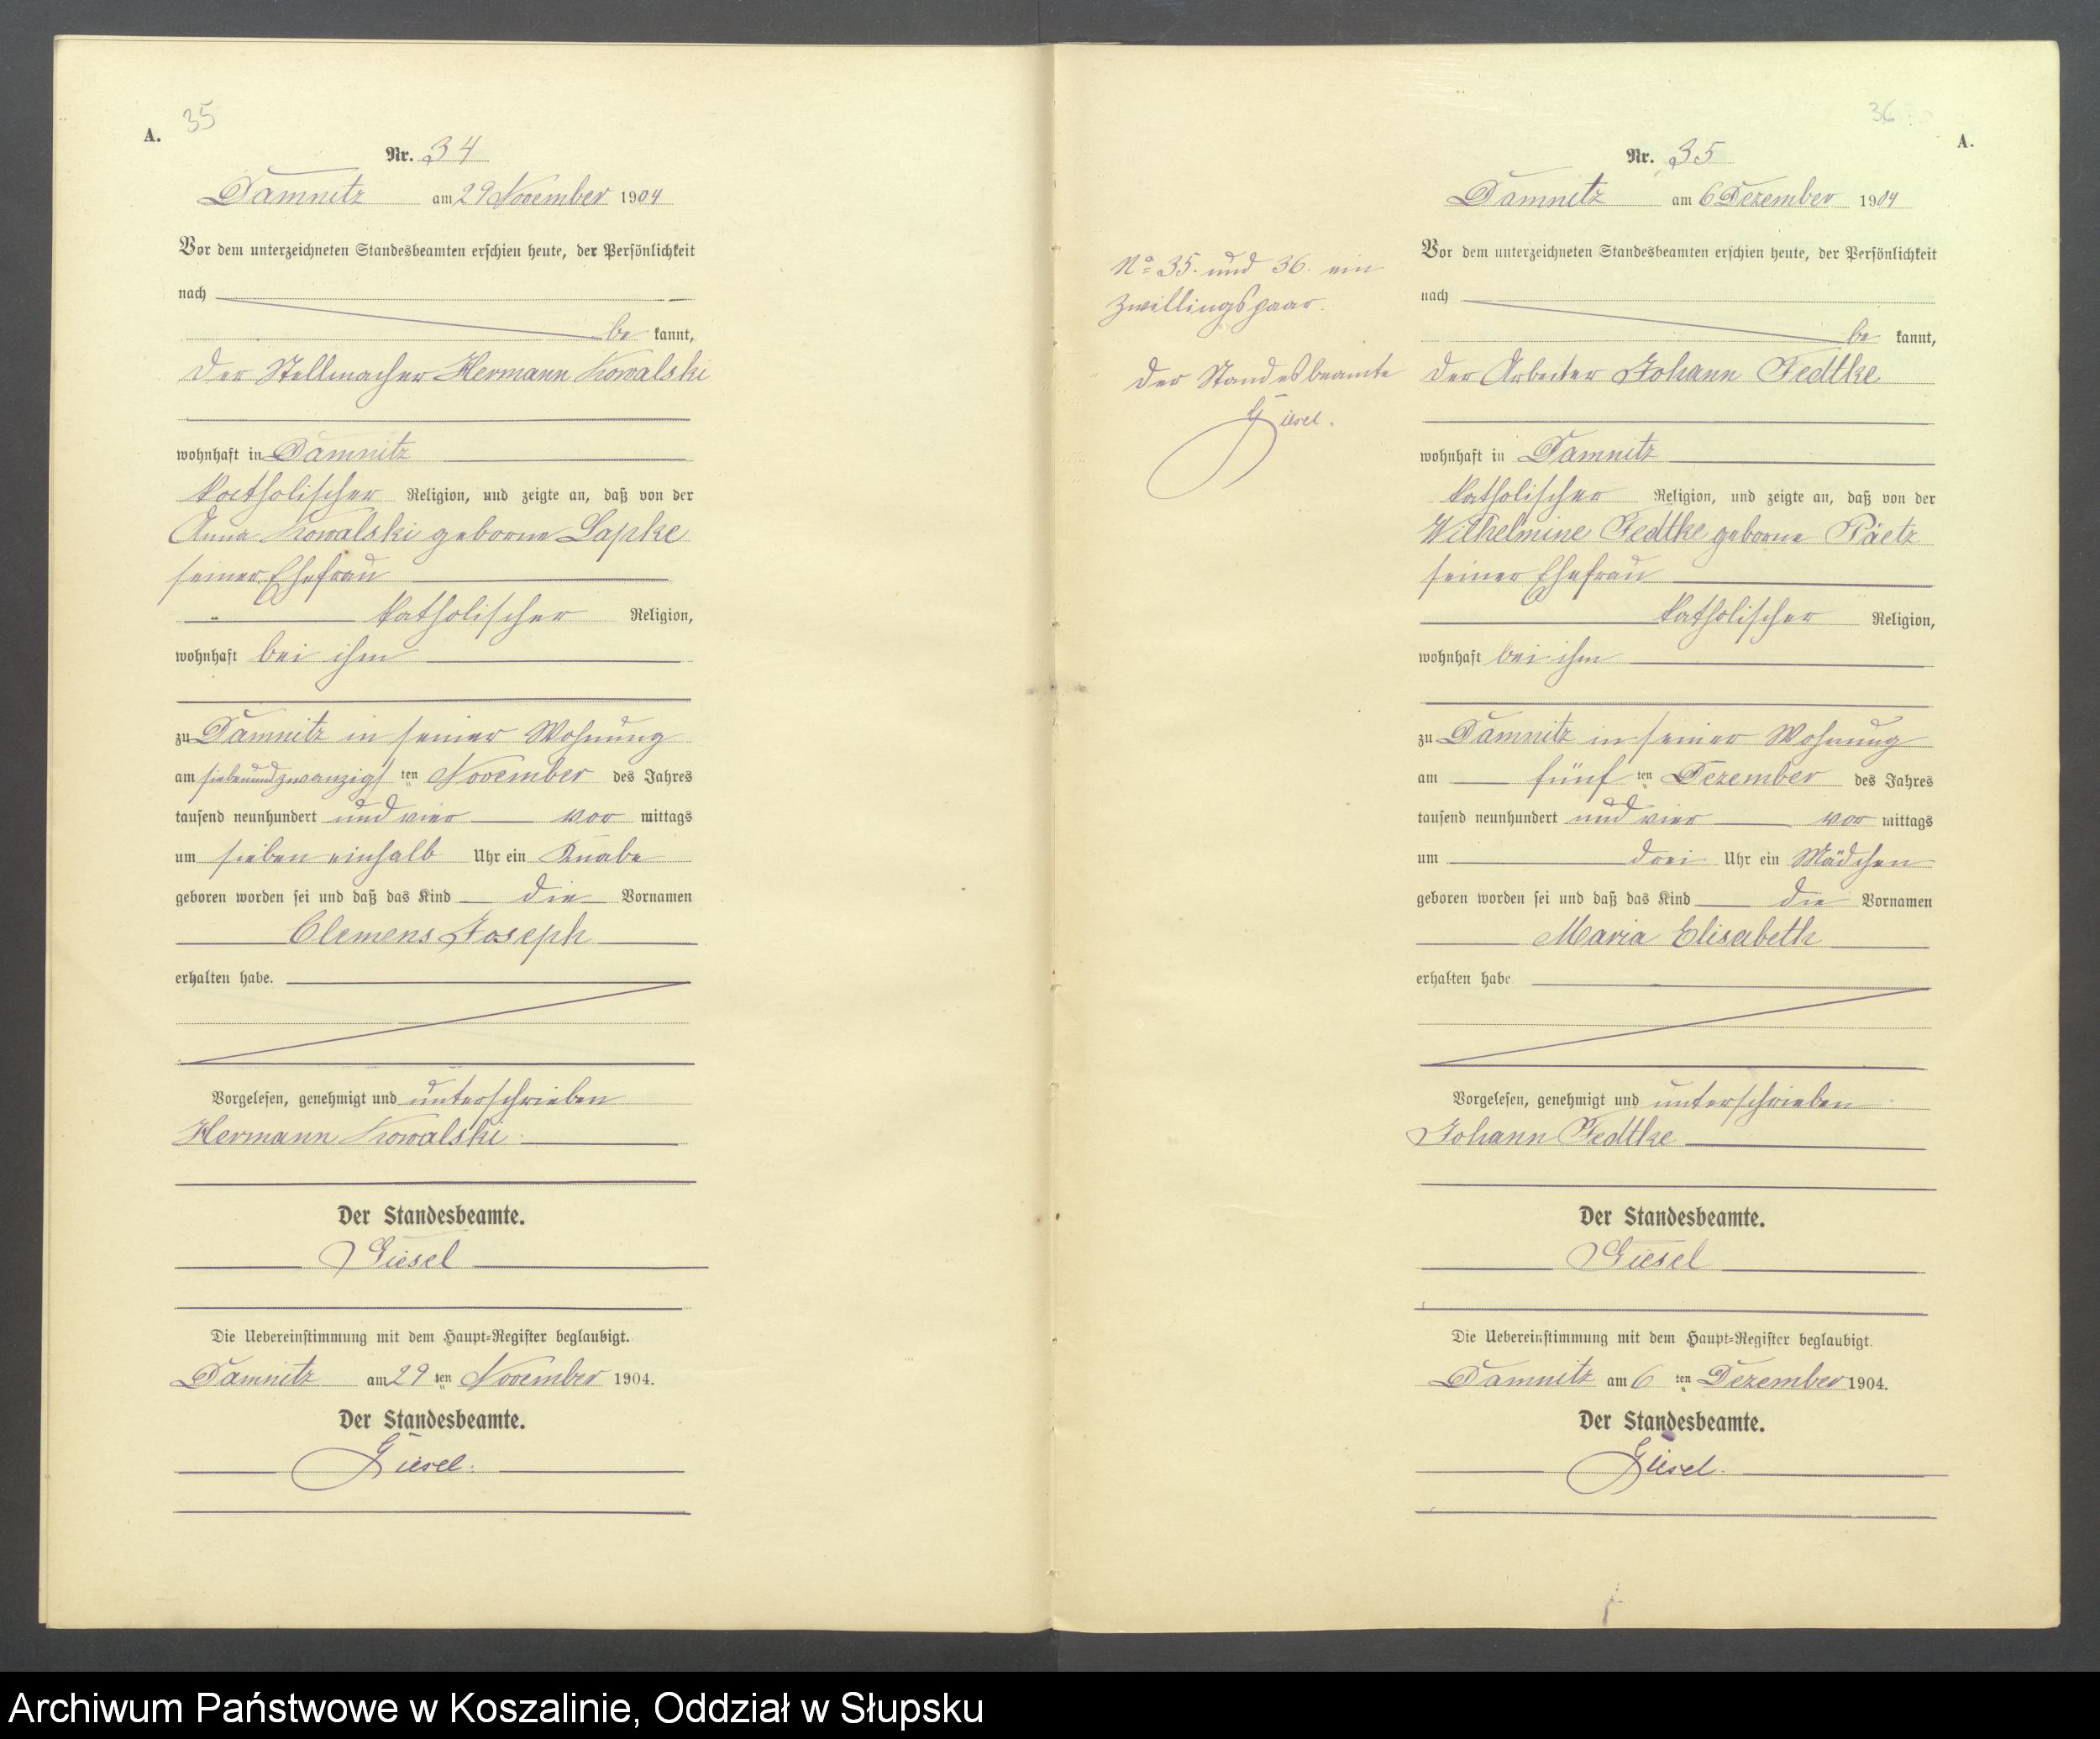 A.
35
Nr. 34
Damnitz am 29 November 1904
Vor dem unterzeichneten Standesbeamten erschien heute, der Persönlichkeit
nach
be kannt,
der Stellmacher Hermann Kowalski
wohnhaft in Damnitz
katholischer Religion, und zeigte an, daß von der
Anna Kowalski geborne Lapke
seiner Ehefrau
katholischer Religion,
wohnhaft bei ihm
zu Damnitz in seiner Wohnung
am siebenundzwanzigsten November des Jahres
tausend neunhundert und vier vor mittags
um sieben einhalb Uhr ein Knabe
geboren worden sei und daß das Kind die Vornamen
Clemens Joseph
erhalten habe.
Vorgelesen, genehmigt und unterschrieben
Hermann Kowalski
Der Standesbeamte.
Giesel
Die Uebereinstimmung mit dem Haupt-Register beglaubigt.
Damnitz am 29 ten November 1904.
Der Standesbeamte.
Giesel.
36
A.
Nr. 35
Damnitz am 6 Dezember 1904
Vor dem unterzeichneten Standesbeamten erschien heute, der Persönlichkeit
nach
be kannt,
No 35. und 36. ein
Zwillingspaar.
Der Standesbeamte
Giesel.
der Arbeiter Johann Fedtke
wohnhaft in Damnitz
katholischer Religion, und zeigte an, daß von der
Wilhelmine Fedtke geborne Päetz
seiner Ehefrau
katholischer Religion,
wohnhaft bei ihm
zu Damnitz in seiner Wohnung
am fünf ten Dezember des Jahres
tausend neunhundert und vier vor mittags
um drei Uhr ein Mädchen
geboren worden sei und daß das Kind die Vornamen
Maria Elisabeth
erhalten habe
Vorgelesen, genehmigt und unterschrieben
Johann Fedtke
Der Standesbeamte.
Giesel
Die Uebereinstimmung mit dem Haupt-Register beglaubigt.
Damnitz am 6 ten Dezember 1904.
Der Standesbeamte.
Giesel.
Archiwum Państwowe w Koszalinie, Oddział w Słupsku